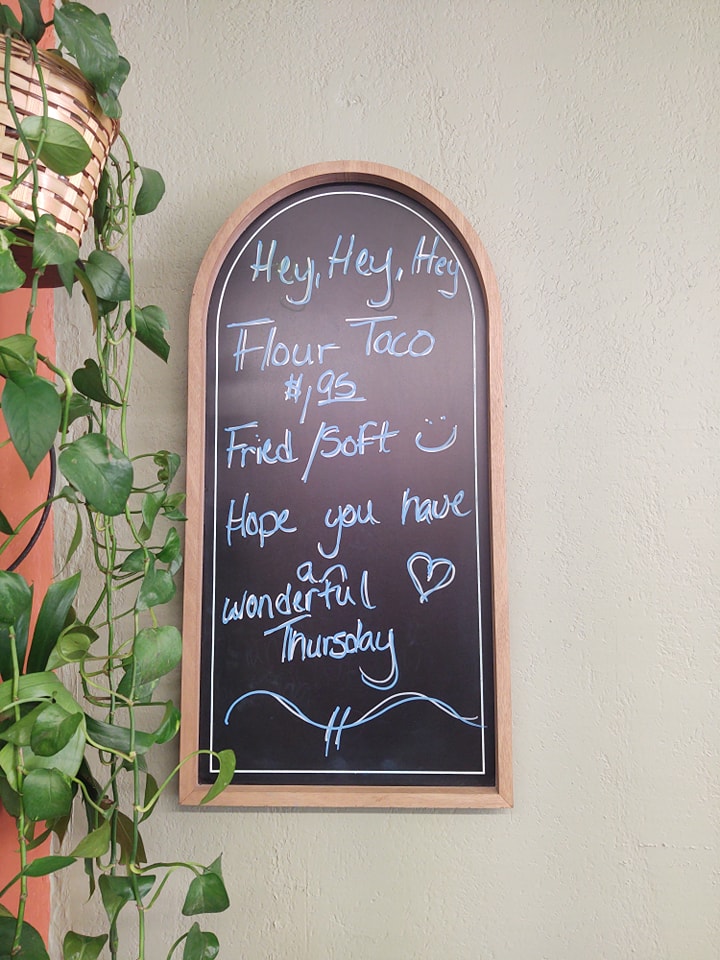 Hey, Hey, Hey
Flour Taco
$1.95
Fried/Soft
Hope you have
an
wonderful
Thursday